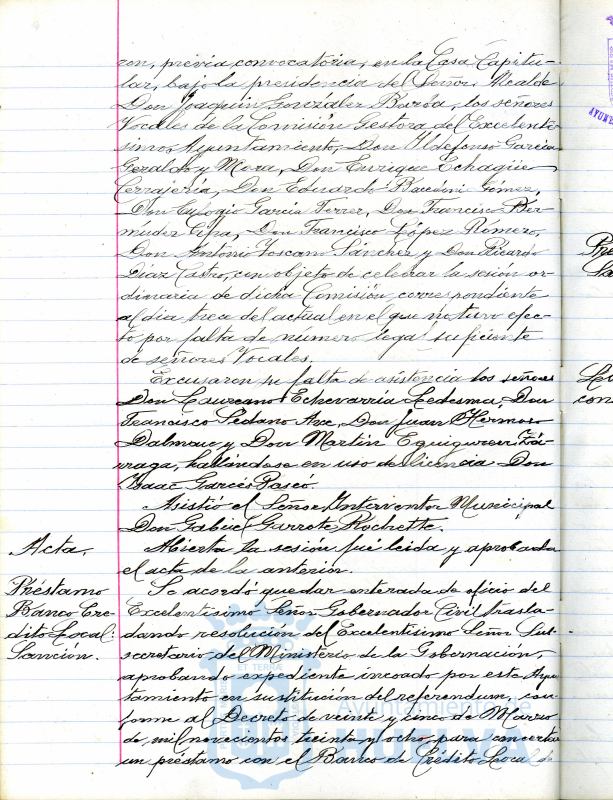 ron, previa convocatoria, en la Casa Capitu-
lar, bajo la presidencia del Señor Alcalde
Don Joaquín González Barba, los señores
Vocales de la Comisión Gestora del Excelentí-
simo Ayuntamiento, Don Ildefonso García
Geraldo y Mora, Don Enrique Echagüe
Cerrajería, Don Eduardo Gómez,
Don Eulogio García Ferrer, Don Francisco Ber-
mudez Cifra, Don Francisco López Romero,
Don Antonio Toscano Sánchez y Don Ricardo
Díaz Castro, con objeto de celebrar la sesión or-
dinaria de dicha Comisión, correspondiente
al día trece del actual en el que no tuvo efec-
to por falta de número legal suficiente
de señores Vocales.
Excusaron su falta de asistencia los señores
Don Laureano Echevarría Ledesma, Don
Francisco Sedano Axe, Don Juan Hermoso
Dalmau y Don Martín Eguiguren Zá-
rraga, hallándose en uso de licencia Don
Isaac Garcés Pascó.
Asistió el Señor Interventor Municipal
Don Gabriel Garrote Rochette.
Acta.
Abierta la sesión fué leida y aprobada
el acta de la anterior.
Préstamo
Banco Cre-
dito Local:
Sanción.
Se acordó quedar enterada de oficio del
Excelentísimo Señor Gobernador Civil trasla-
dando resolución del Excelentísimo Señor Sub-
secretario del Ministerio de la Gobernación,
aprobando expediente incoado por este Ayun
tamiento en sustitución del referendum, con-
forme al Decreto de veinte y cinco de Marzo
de mil novecientos treinta y ocho, para concertar
un préstamo con el Banco de Crédito Local de
ET TERRÆ
Ayuntamiento de
HUELVA